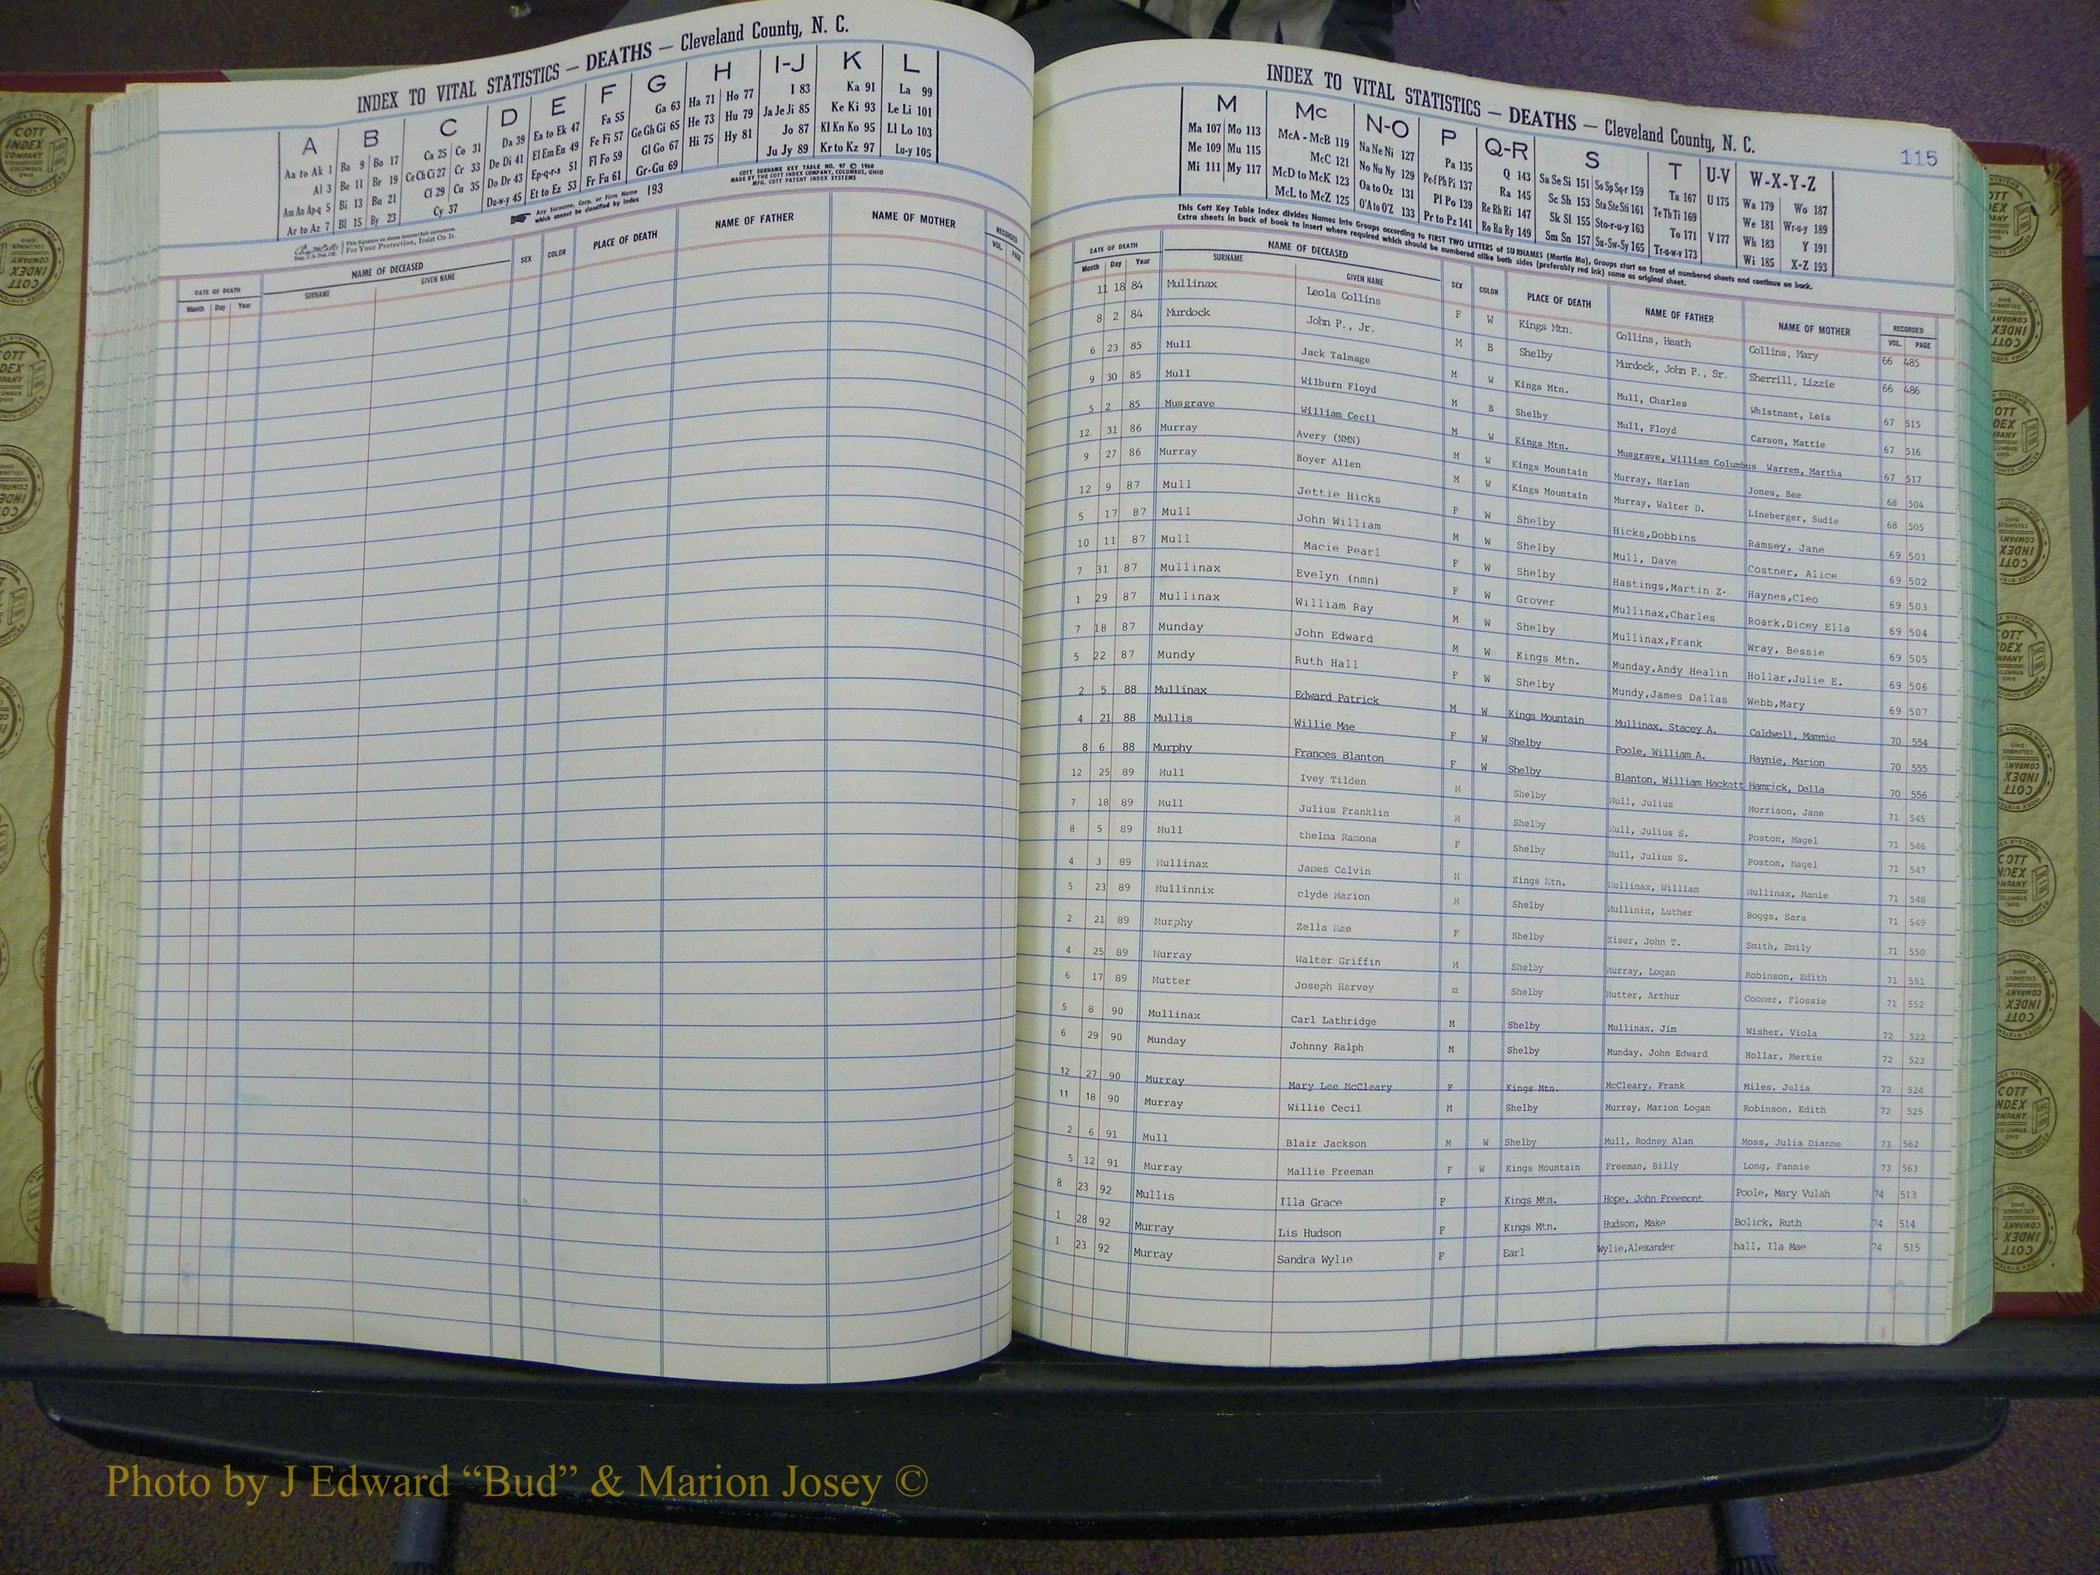 INDEX TO VITAL STATISTICS — DEATHS — Cleveland County, N. C.
A B C D E F G H I-J K L
Aa to Ak 1 Ba 9 Bo 17 Ca 25 Co 31 Da 39 Ea to Ek 47 Fa 55 Ga 63 Ha 71 Ho 77 I 83 Ka 91 La 99
Al 3 Be 11 Br 19 Ce Ch Ci 27 Cr 33 De Di 41 El Em En 49 Fe Fi 57 Ge Gh Gi 65 He 73 Hu 79 Ja Je Ji 85 Ke Ki 93 Le Li 101
Am An Ap-q 5 Bi 13 Bu 21 Cl 29 Cu 35 Do Dr 43 Ep-q-r-s 51 Fl Fo 59 Gl Go 67 Hi 75 Hy 81 Jo 87 Kl Kn Ko 95 Ll Lo 103
Ar to Az 7 Bl 15 By 23 Cy 37 Du-w-y 45 Et to Ez 53 Fr Fu 61 Gr-Gu 69 Ju Jy 89 Kr to Kz 97 Lu-y 105
COTT SURNAME KEY TABLE NO. 97 © 1960
MADE BY THE COTT INDEX COMPANY, COLUMBUS, OHIO
MFG. COTT PATENT INDEX SYSTEMS
Any Surname, Corp. or Firm Name which cannot be classified by Index 193
For Your Protection, Insist On It.
DATE OF DEATH NAME OF DECEASED SEX COLOR PLACE OF DEATH NAME OF FATHER NAME OF MOTHER RECORDED
Month Day Year SURNAME GIVEN NAME VOL. PAGE
INDEX TO VITAL STATISTICS — DEATHS — Cleveland County, N. C.
115
M Mc N-O P Q-R S T U-V W-X-Y-Z
Ma 107 Mo 113 McA - McB 119 Na Ne Ni 127 Pa 135 Q 143 Sa Se Si 151 So Sp Sq-r 159 Ta 167 U 175 Wa 179 Wo 187
Me 109 Mu 115 McC 121 No Nu Ny 129 Pe-f Ph Pi 137 Ra 145 Sc Sh 153 Sta Ste Sti 161 Te Th Ti 169 We 181 Wr-u-y 189
Mi 111 My 117 McD to McK 123 Oa to Oz 131 Pl Po 139 Re Rh Ri 147 Sk Sl 155 Sto-r-u-y 163 To 171 V 177 Wh 183 Y 191
McL to McZ 125 O'A to O'Z 133 Pr to Pz 141 Ro Ru Ry 149 Sm Sn 157 Su-Sw-Sy 165 Tr-u-w-y 173 Wi 185 X-Z 193
This Cott Key Table Index divides Names into Groups according to FIRST TWO LETTERS of SURNAMES (Martin Ma), Groups start on front of numbered sheets and continue on back.
Extra sheets in back of book to insert where required which should be numbered alike both sides (preferably red ink) same as original sheet.
DATE OF DEATH NAME OF DECEASED SEX COLOR PLACE OF DEATH NAME OF FATHER NAME OF MOTHER RECORDED
Month Day Year SURNAME GIVEN NAME VOL. PAGE
11 18 84 Mullinax Leola Collins F W Kings Mtn. Collins, Heath Collins, Mary 66 485
8 2 84 Murdock John P., Jr. M B Shelby Murdock, John P., Sr. Sherrill, Lizzie 66 486
6 23 85 Mull Jack Talmage M W Kings Mtn. Mull, Charles Whistnant, Lois 67 515
9 30 85 Mull Wilburn Floyd M B Shelby Mull, Floyd Carson, Mattie 67 516
5 2 85 Musgrave William Cecil M W Kings Mtn. Musgrave, William Columbus Warren, Martha 67 517
12 31 86 Murray Avery (NMN) M W Kings Mountain Murray, Harlan Jones, Bee 68 504
9 27 86 Murray Boyer Allen M W Kings Mountain Murray, Walter D. Lineberger, Sudie 68 505
12 9 87 Mull Jettie Hicks F W Shelby Hicks,Dobbins Ramsey, Jane 69 501
5 17 87 Mull John William M W Shelby Mull, Dave Costner, Alice 69 502
10 11 87 Mull Macie Pearl F W Shelby Hastings,Martin Z. Haynes,Cleo 69 503
7 31 87 Mullinax Evelyn (nmn) F W Grover Mullinax,Charles Roark,Dicey Ella 69 504
1 29 87 Mullinax William Ray M W Shelby Mullinax,Frank Wray, Bessie 69 505
7 18 87 Munday John Edward M W Kings Mtn. Munday,Andy Healin Hollar,Julie E. 69 506
5 22 87 Mundy Ruth Hall F W Shelby Mundy,James Dallas Webb,Mary 69 507
2 5 88 Mullinax Edward Patrick M W Kings Mountain Mullinax, Stacey A. Caldwell, Mammie 70 554
4 21 88 Mullis Willie Mae F W Shelby Poole, William A. Haynie, Marion 70 555
8 6 88 Murphy Frances Blanton F W Shelby Blanton, William Hackett Hamrick, Della 70 556
12 25 89 Mull Ivey Tilden M Shelby Mull, Julius Morrison, Jane 71 545
7 18 89 Mull Julius Franklin M Shelby Mull, Julius S. Poston, Magel 71 546
8 5 89 Mull thelma Ramona F Shelby Mull, Julius S. Poston, Magel 71 547
4 3 89 Mullinax James Calvin M Kings Mtn. Mullinax, William Mullinax, Manie 71 548
5 23 89 Mullinnix clyde Marion M Shelby Mullinix, Luther Boggs, Sara 71 549
2 21 89 Murphy Zella Mae F Shelby Kiser, John T. Smith, Emily 71 550
4 25 89 Murray Walter Griffin M Shelby Murray, Logan Robinson, Edith 71 551
6 17 89 Mutter Joseph Harvey m Shelby Mutter, Arthur Cooner, Flossie 71 552
5 8 90 Mullinax Carl Lathridge M Shelby Mullinax, Jim Wisher, Viola 72 522
6 29 90 Munday Johnny Ralph M Shelby Munday, John Edward Hollar, Mertie 72 523
12 27 90 Murray Mary Lee McCleary F Kings Mtn. McCleary, Frank Miles, Julia 72 524
11 18 90 Murray Willie Cecil M Shelby Murray, Marion Logan Robinson, Edith 72 525
2 6 91 Mull Blair Jackson M W Shelby Mull, Rodney Alan Moss, Julia Dianne 73 562
5 12 91 Murray Mallie Freeman F W Kings Mountain Freeman, Billy Long, Fannie 73 563
8 23 92 Mullis Illa Grace F Kings Mtn. Hope, John Freemont Poole, Mary Vulah 74 513
1 28 92 Murray Lis Hudson F Kings Mtn. Hudson, Make Bolick, Ruth 74 514
1 23 92 Murray Sandra Wylie F Earl Wylie,Alexander hall, Ila Mae 74 515
Photo by J Edward “Bud” & Marion Josey ©